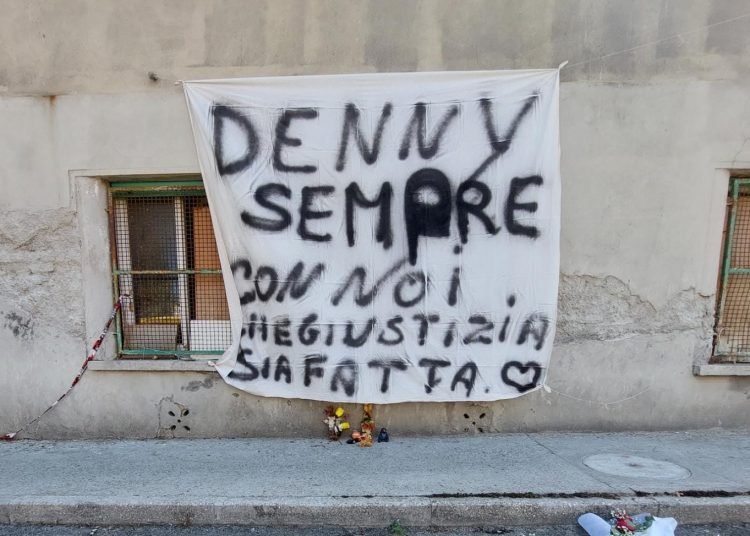 DENNY
SEMPRE
CON NOI.
CHE GIUSTIZIA
SIA FATTA.